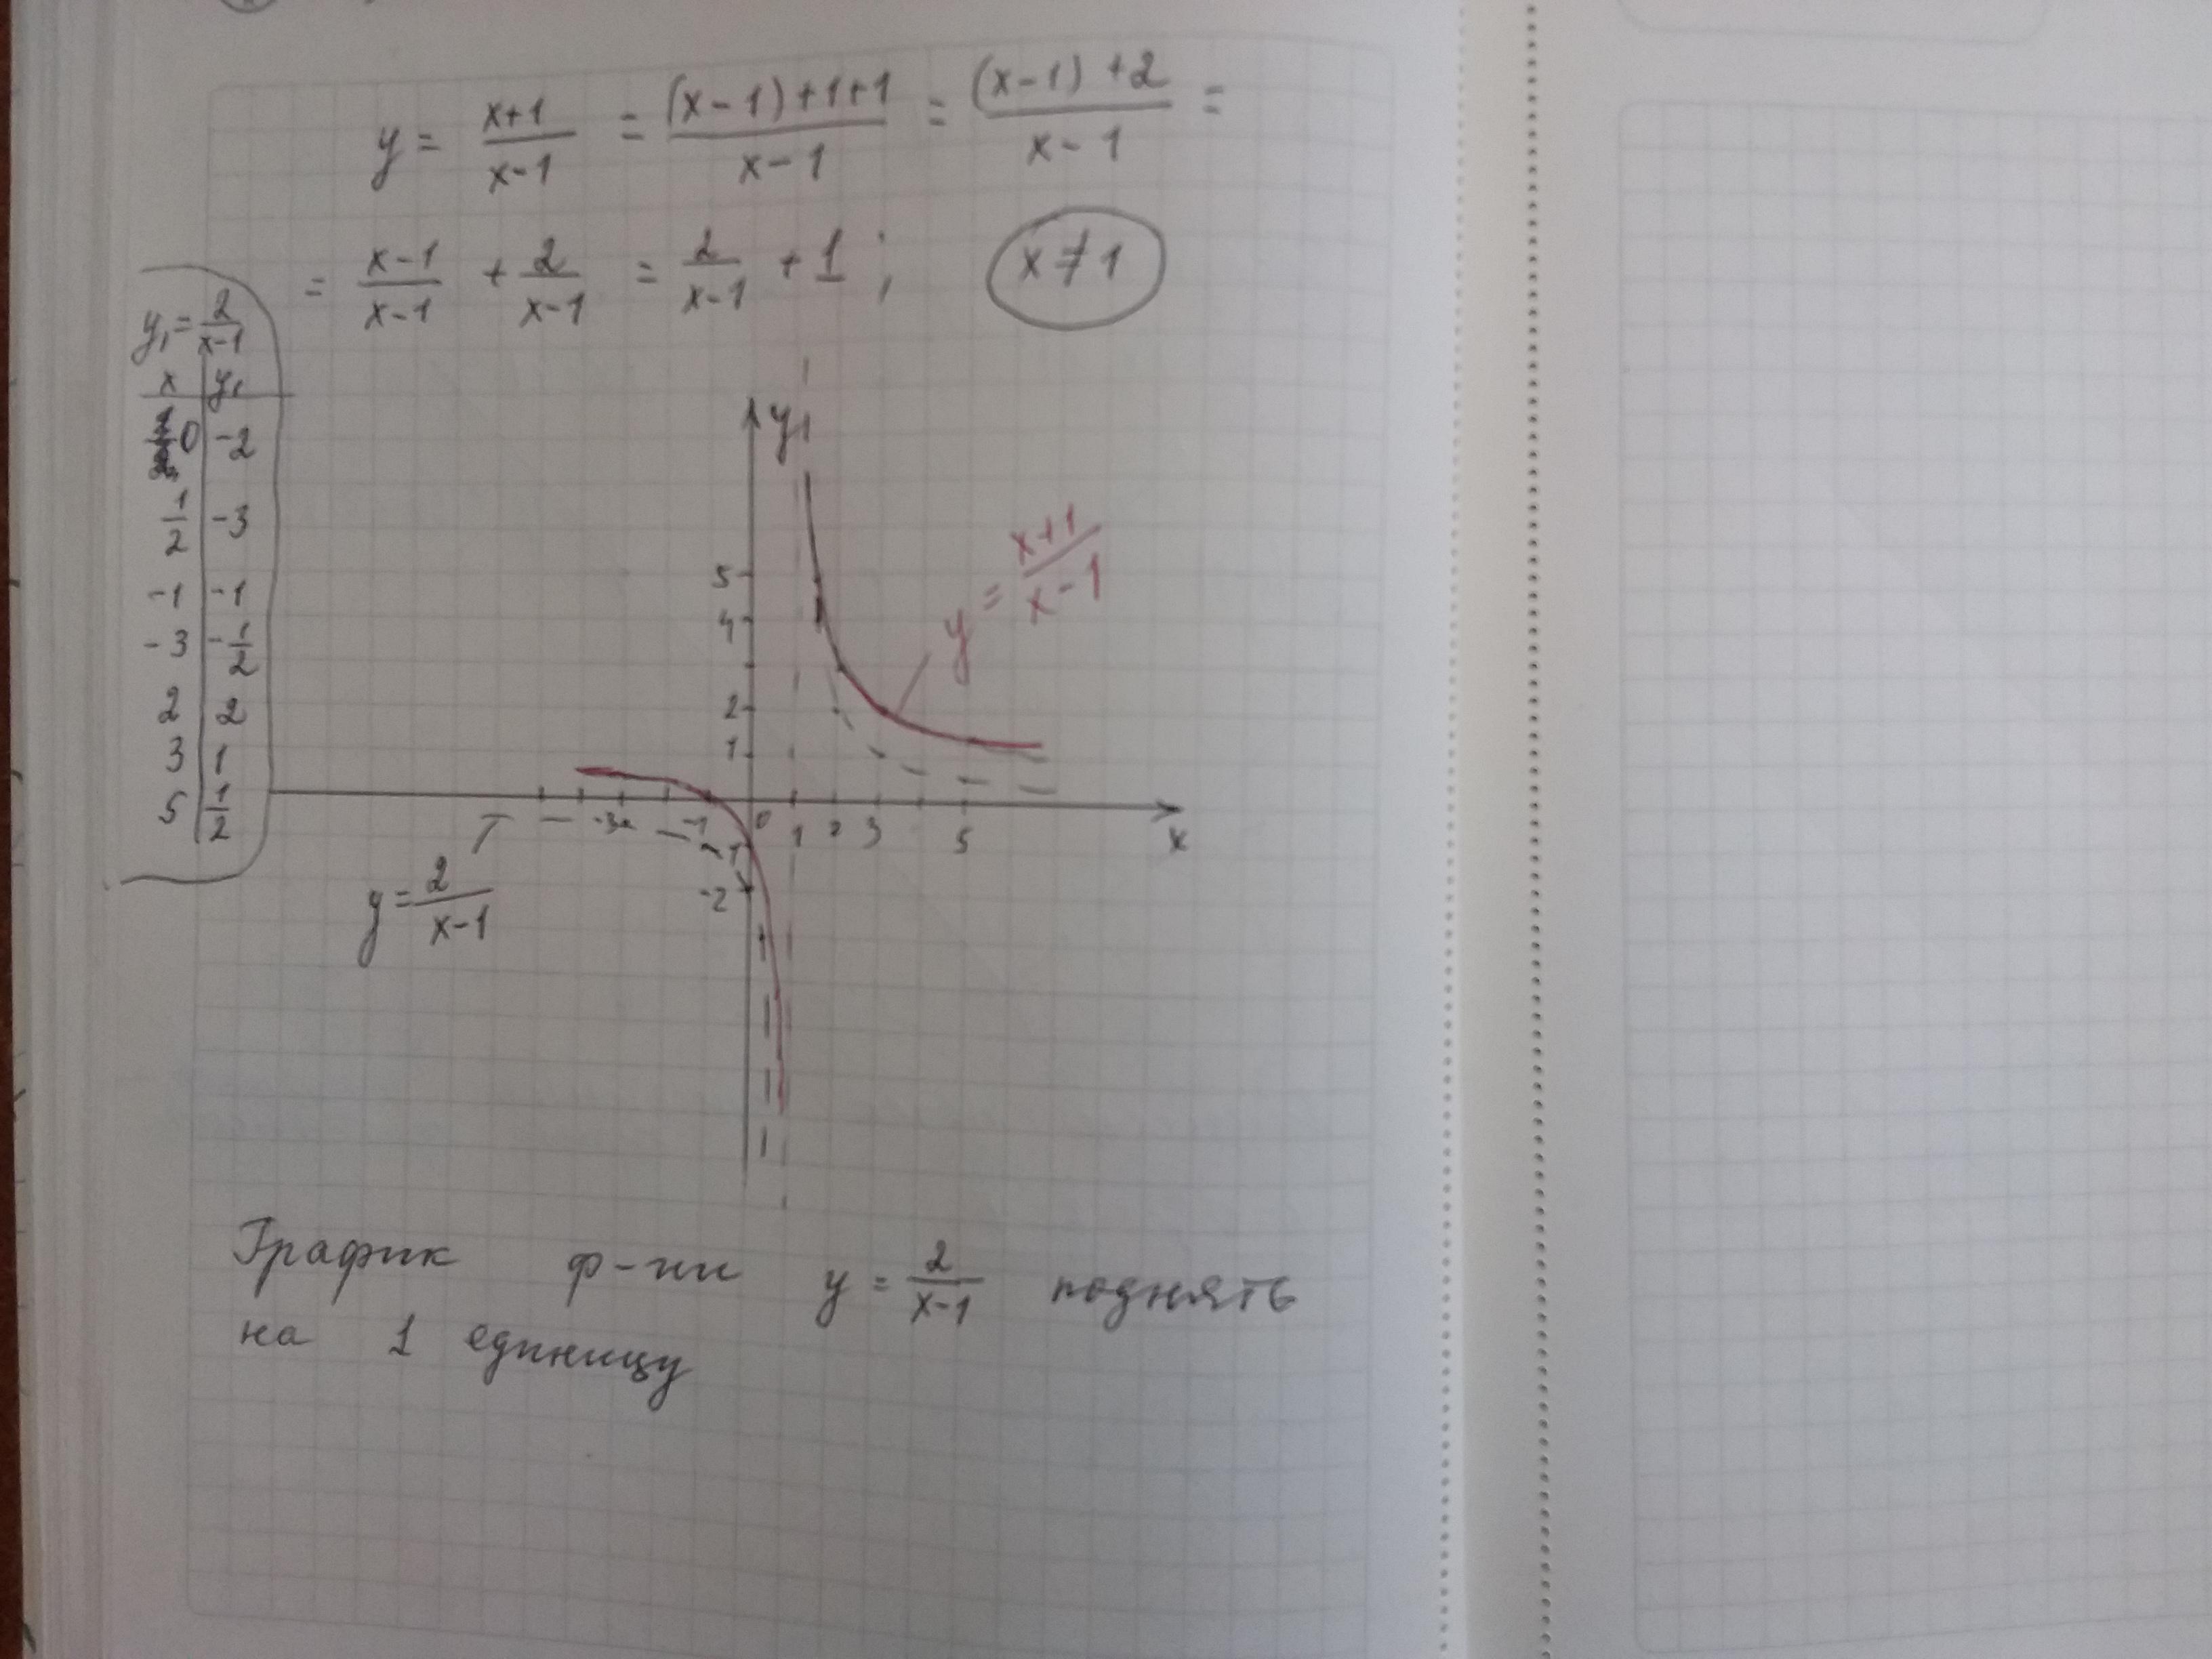 y = (x+1)/(x-1) = ((x-1)+1+1)/(x-1) = ((x-1)+2)/(x-1) =
= (x-1)/(x-1) + 2/(x-1) = 2/(x-1) + 1 ; x ≠ 1
y₁ = 2/(x-1)
x | y₁
0 | -2
1/2 | -3
-1 | -1
-3 | -1/2
2 | 2
3 | 1
5 | 1/2
y
5
4
2
1
y = (x+1)/(x-1)
-3 -1 0 1 2 3 5 x
-1
-2
y = 2/(x-1)
График ф-ии y = 2/(x-1) поднять
на 1 единицу